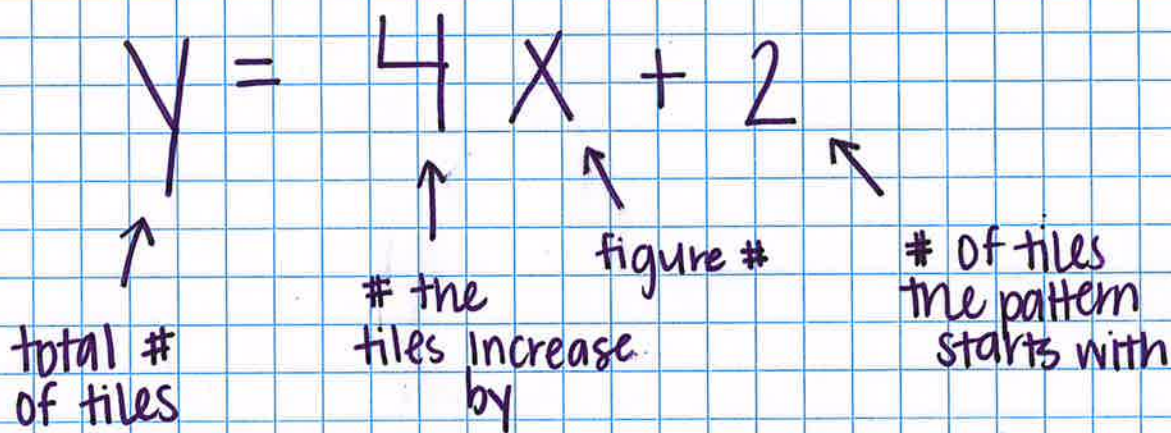 y = 4 x + 2
total #
of tiles
# the
tiles increase
by
figure #
# of tiles
the pattern
starts with